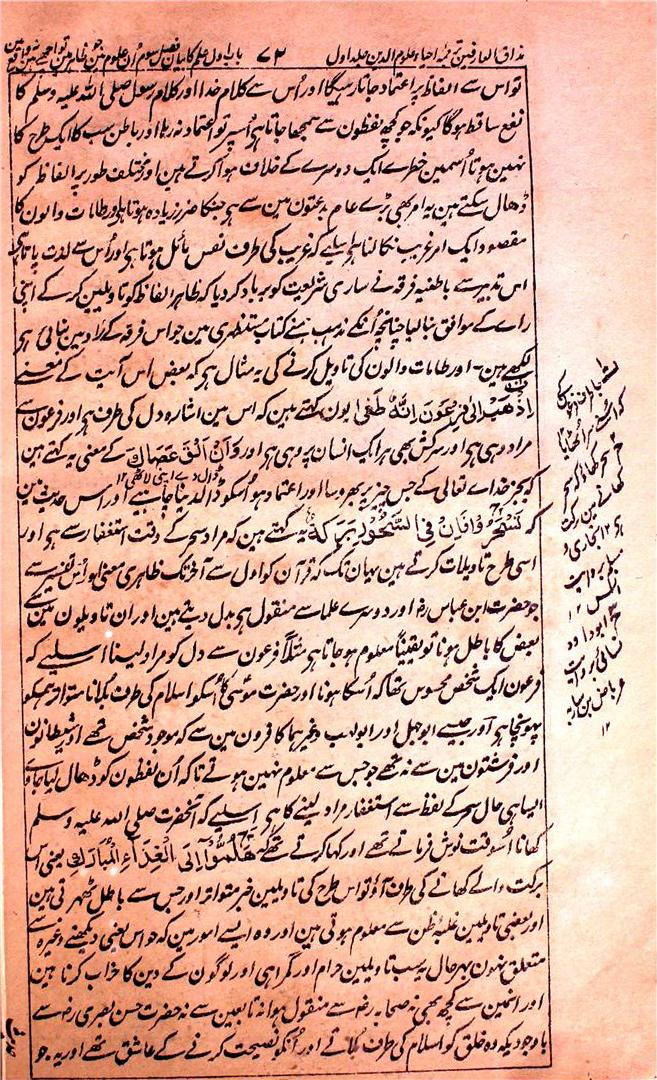 مذاق العارفین ترجمہ احیاء علوم الدین جلد اول ۷۳ باب اول علم کا بیان فصل سوم ان علوم میں جو ظاہر میں تو اچھے
تو اس سے الفاظ پر اعتماد جاتا رہیگا اور اُس سے کلام خدا اور کلام رسول صلی اللہ علیہ وسلم کا
نفع ساقط ہوگا کیونکہ جو کچھ لفظون سے سمجھا جاتا ہی اُسپر تو اعتماد نہ رہا اور باطن سب کا ایک طرح کا
نہین ہوتا اُسمین خطرے ایک دوسرے کے خلاف ہوا کرتے ہین اور مختلف طور پر الفاظ کو
ڈھال سکتے ہین یہ امر بھی بڑے عام بدعتون مین سے ہی جنکا ضرر زیادہ ہوتا ہی اور طامات والون کا
مقصود ایک امر غریب نکالنا ہی اسلیے کہ غریب کی طرف نفس مائل ہوتا ہی اور اُس سے لذت پاتا ہی
اس تدبیر سے باطنیہ فرقہ نے ساری شریعت کو برباد کر دیا کہ ظاہر الفاظ کو تاویلین کر کے اپنی
راے کے موافق بنا لیا چنانچہ اُنکے مذہب ہمنے کتاب مستظہری مین جو اس فرقہ کے رد مین بنائی ہی
لکھے ہین۔ اور طامات والون کی تاویل کرنے کی یہ مثال ہی کہ بعض اس آیت کے معنے
اِذْهَبْ اِلٰى فِرْعَوْنَ اِنَّهٗ طَغٰى یون کہتے ہین کہ اس مین اشارہ دل کی طرف ہی اور فرعون سے
مراد وہی ہی اور سرکش بھی ہر ایک انسان پر وہی ہی اور وَاَنْ اَلْقِ عَصَاكَ کے معنی یہ کہتے ہین
کہ بجز خدا ے تعالی کے جس چیز پر بھروسا اور اعتماد ہو اُسکو ڈالدینا چاہیے اور اس حدیث مین
کہ تَسَحَّرُوْا فَاِنَّ فِى السَّحُوْرِ بَرَكَةً یہ کہتے ہین کہ مراد سحر کے وقت استغفار سے ہی اور
اسی طرح تاویلات کرتے ہین یہان تک کہ قرآن کو اول سے آخر تک ظاہری معنی اور اُس تفسیر سے
جو حضرت ابن عباس رض اور دوسرے علما سے منقول ہی بدل دیتے ہین اور ان تاویلون مین سے
بعض کا باطل ہونا تو یقیناً معلوم ہو جاتا ہی مثلاً فرعون سے دل کو مراد لینا اسلیے کہ
فرعون ایک شخص محسوس تھا کہ اُسکا ہونا اور حضرت موسیٰ کا اُسکو اسلام کی طرف بلانا متواتر ہمکو
پہونچا ہی اور جیسے ابوجہل اور ابولہب وغیرہما کافرون مین سے کہ موجود شخص تھے اور شیطانون
اور فرشتون مین سے نہ تھے جو حس سے معلوم نہین ہوتے تاکہ اُن لفظون کو ڈھال لیا جاوے
ایسا ہی حال سحر کے لفظ سے استغفار مراد لینے کا ہی اسلیے کہ آنحضرت صلی اللہ علیہ وسلم
کھانا اُسوقت نوش فرماتے تھے اور کہا کرتے تھے کہ هَلُمُّوْا اِلَى الْغِذَاءِ الْمُبَارَكِ یعنی اس
برکت والے کھانے کی طرف آؤ تو اس طرح کی تاویلین خبر متواتر اور حس سے باطل ٹھہرتی ہین
اور بعضی تاویلین غلبۂ ظن سے معلوم ہوتی ہین اور وہ ایسے امور مین کہ حواس یعنی دیکھنے وغیرہ سے
متعلق نہون بہر حال یہ سب تاویلین حرام اور گمراہی اور لوگون کے دین کا خراب کرنا ہین
اور انمین سے کچھ بھی نہ صحابہ رض سے منقول ہوا نہ تابعین سے نہ حضرت حسن بصری رض سے
باوجودیکہ وہ خلق کو اسلام کی طرف بلاتے اور اُنکو نصیحت کرنے کے عاشق تھے اور یہ جو
سحر کھاؤ کہ سحر
کھانے مین برکت
ہی ۱۲ بخاری و
مسلم بروایت
انس ۱۲
ابو داود
نسائی بروایت
عرباض بن ساریہ
۱۲